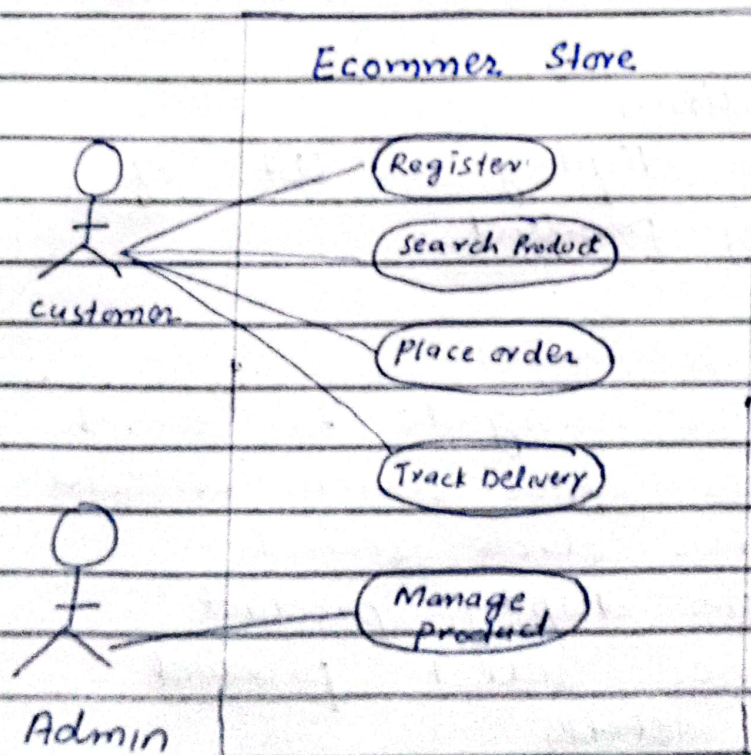 Ecommer Store
Register
Search Product
customer
Place order
Track Delivery
Manage
product
Admin